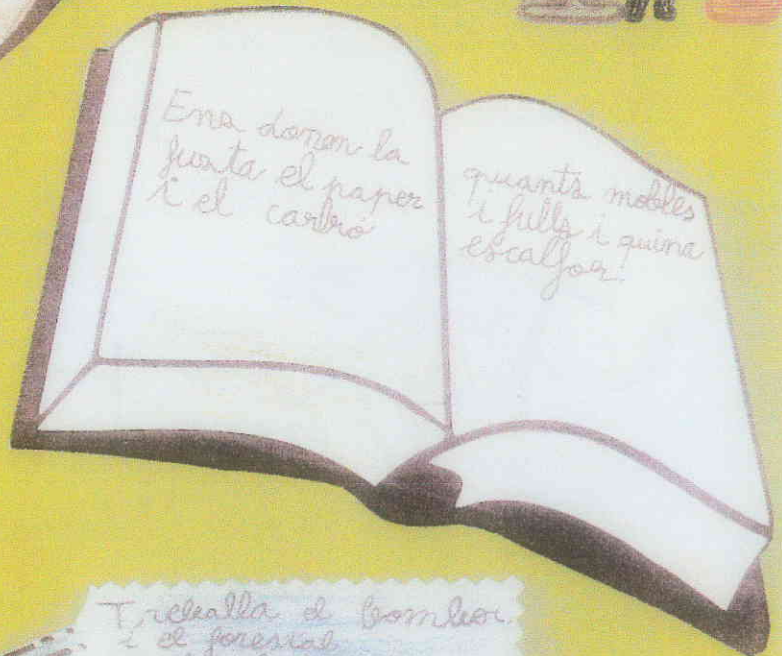 Ens donen la
fusta el paper
i el carbó
quants mobles
i fulls i quina
escalfor!
Treballa el bomber
i el forestal